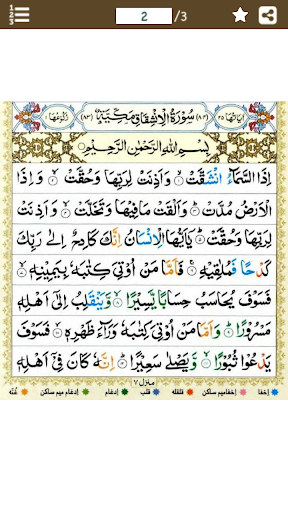 2 /3
اٰیَاتُهَا ٢٥ (٨٤) سُوْرَةُ الْاِنْشِقَاقِ مَكِّيَّةٌ (٨٣) رُكُوْعُهَا ١
بِسْمِ اللّٰهِ الرَّحْمٰنِ الرَّحِيْمِ
اِذَا السَّمَآءُ انْشَقَّتْ ۙ وَاَذِنَتْ لِرَبِّهَا وَحُقَّتْ ۙ وَاِذَا
الْاَرْضُ مُدَّتْ ۙ وَاَلْقَتْ مَا فِيْهَا وَتَخَلَّتْ ۙ وَاَذِنَتْ
لِرَبِّهَا وَحُقَّتْ ۙ يٰۤاَيُّهَا الْاِنْسَانُ اِنَّكَ كَادِحٌ اِلٰى رَبِّكَ
كَدْحًا فَمُلٰقِيْهِ ۚ فَاَمَّا مَنْ اُوْتِيَ كِتٰبَهٗ بِيَمِيْنِهٖ ۙ
فَسَوْفَ يُحَاسَبُ حِسَابًا يَّسِيْرًا ۙ وَّيَنْقَلِبُ اِلٰۤى اَهْلِهٖ
مَسْرُوْرًا ؕ وَاَمَّا مَنْ اُوْتِيَ كِتٰبَهٗ وَرَآءَ ظَهْرِهٖ ۙ فَسَوْفَ
يَدْعُوْا ثُبُوْرًا ۙ وَّيَصْلٰى سَعِيْرًا ؕ اِنَّهٗ كَانَ فِيْۤ اَهْلِهٖ
منزل ٧
اخفا اخفامیم ساکن قلقله قلب ادغام ادغام میم ساکن غُنّه